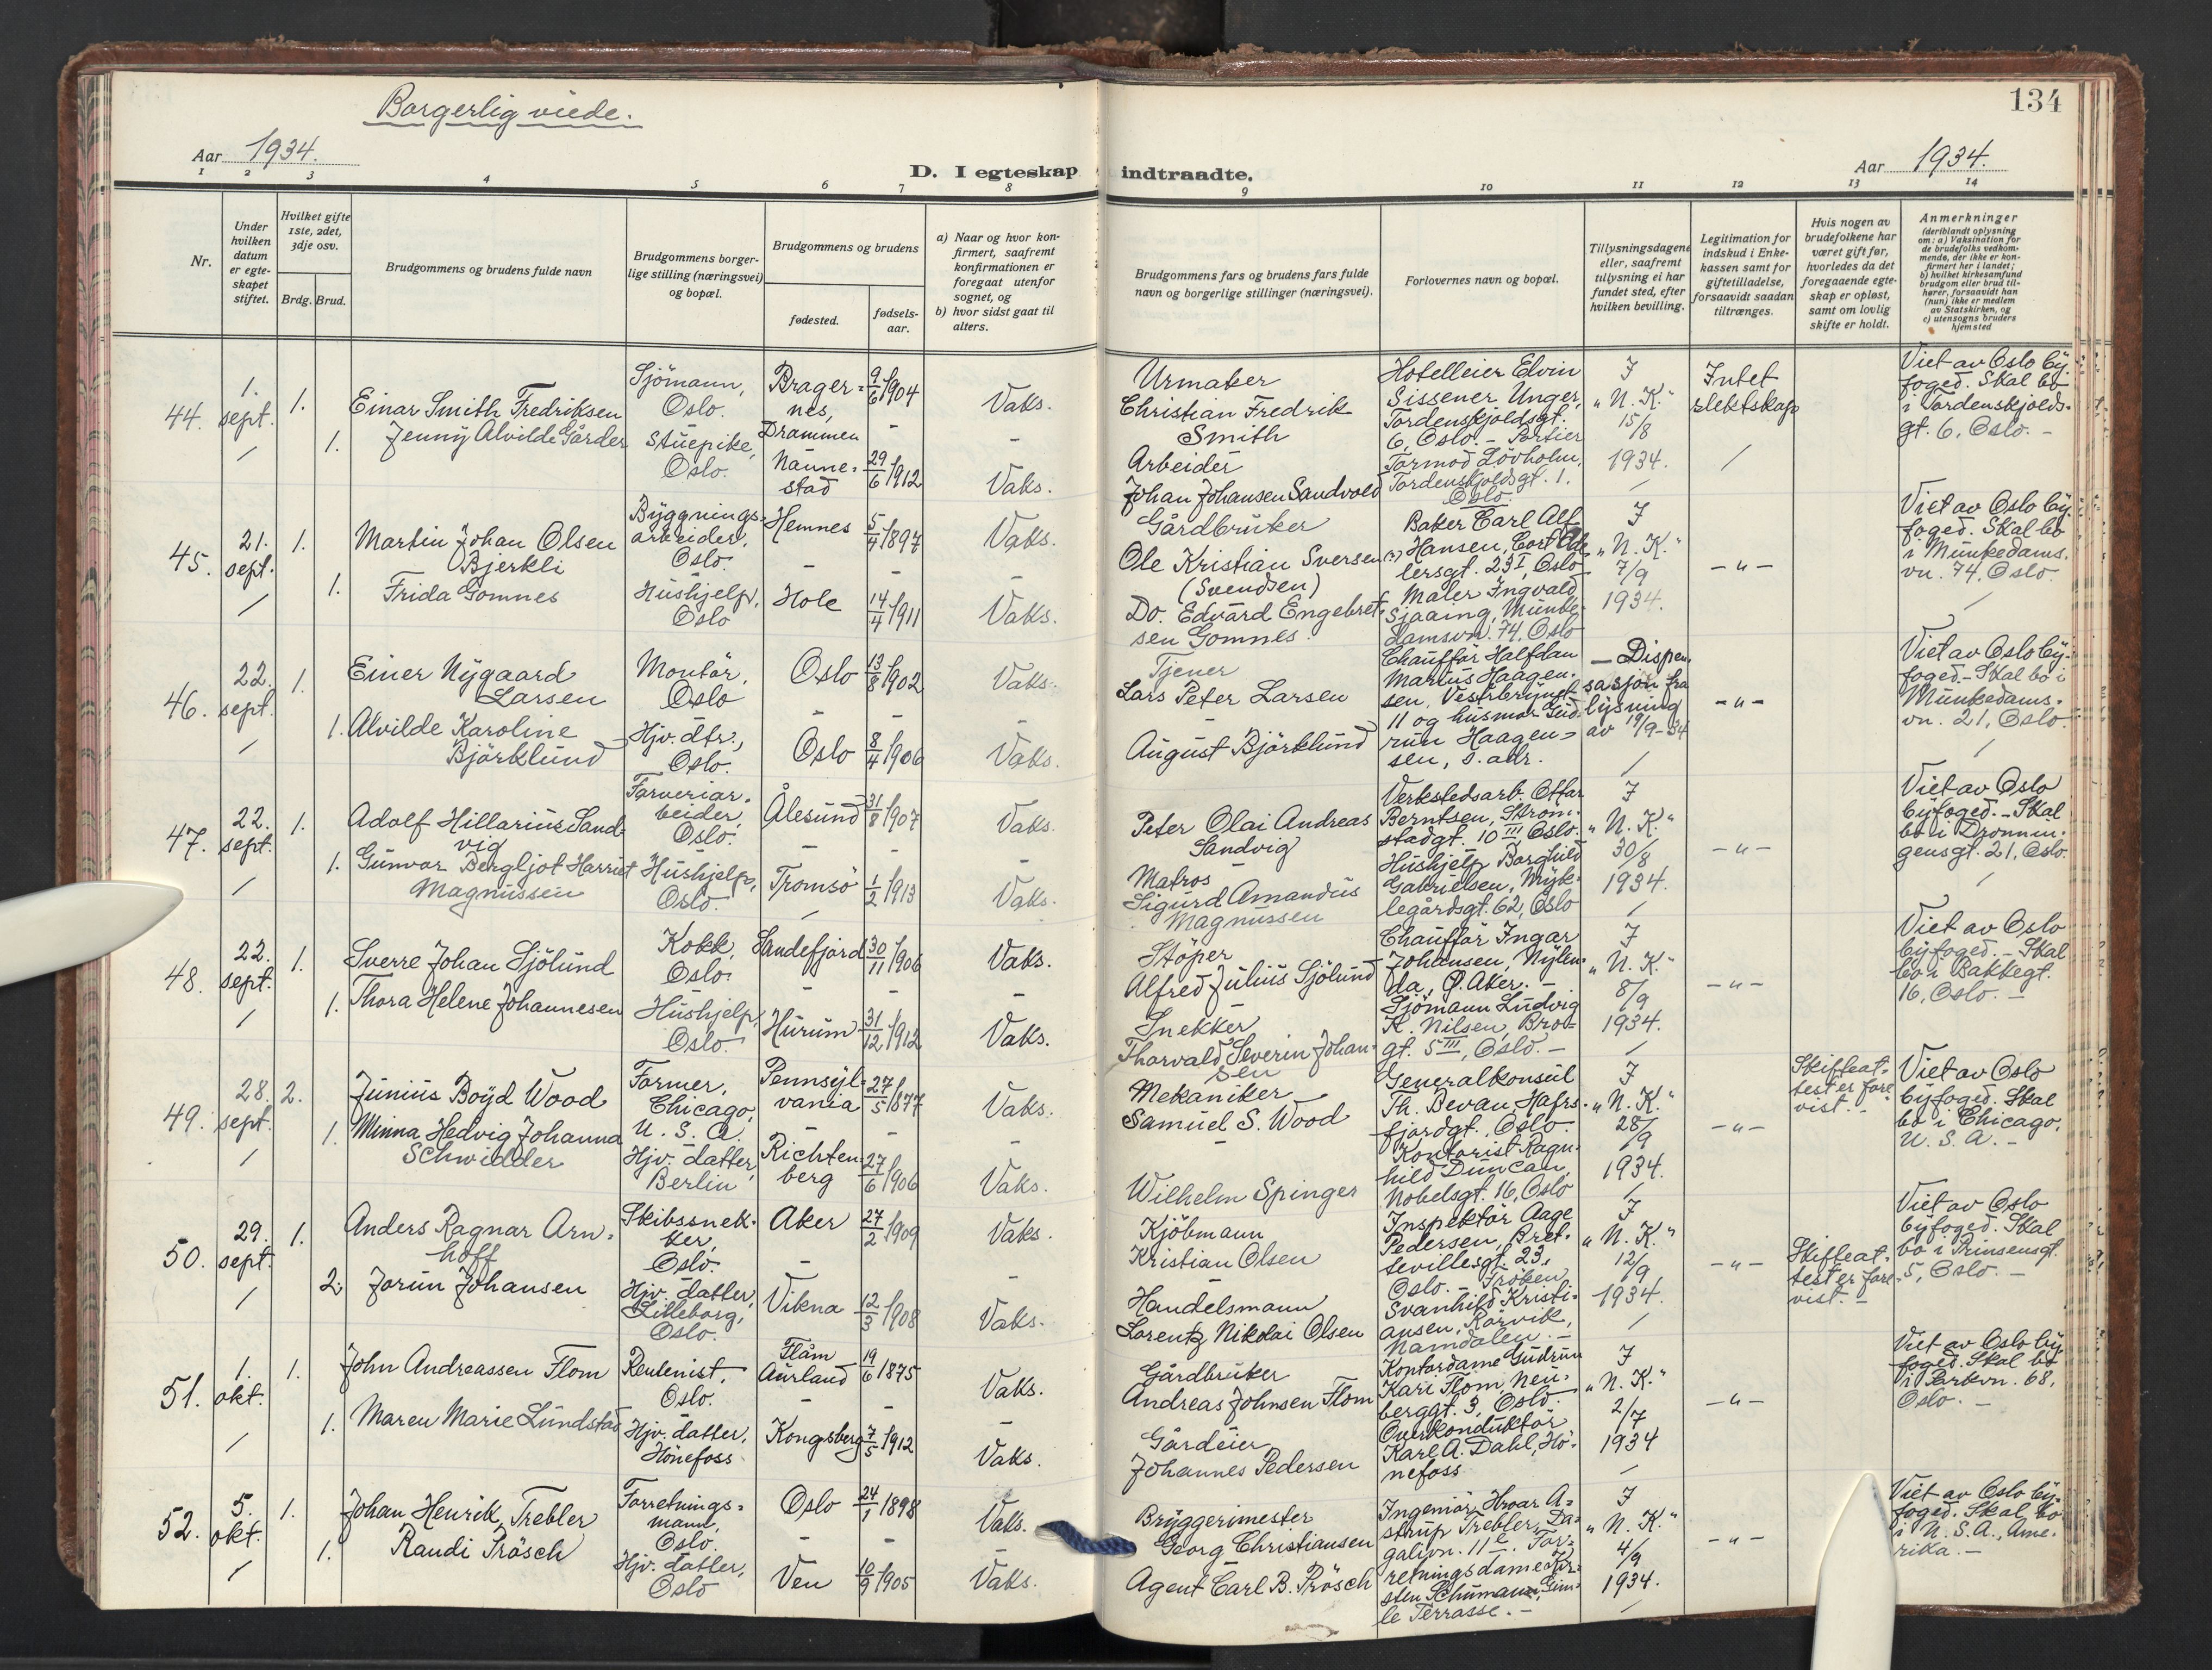 Borgerlig viede.
134
Aar 1934.
D. I egteskap indtraadte.
Aar 1934.
1 2 3 4 5 6 7 8 9 10 11 12 13 14
Nr.
Under hvilken datum er egteskapet stiftet.
Hvilket gifte 1ste, 2det, 3dje osv.
Brdg. Brud.
Brudgommens og brudens fulde navn
Brudgommens borgerlige stilling (næringsvei) og bopæl.
Brudgommens og brudens
fødested.
fødselsaar.
a) Naar og hvor konfirmert, saafremt konfirmationen er foregaat utenfor sognet, og
b) hvor sidst gaat til alters.
Brudgommens fars og brudens fars fulde navn og borgerlige stillinger (næringsvei).
Forlovernes navn og bopæl.
Tillysningsdagene eller, saafremt tillysning ei har fundet sted, efter hvilken bevilling.
Legitimation for indskud i Enkekassen samt for giftetilladelse, forsaavidt saadan tiltrænges.
Hvis nogen av brudefolkene har været gift før, hvorledes da det foregaaende egteskap er opløst, samt om lovlig skifte er holdt.
Anmerkninger
(deriblandt oplysning om: a) Vaksination for de brudefolks vedkommende, der ikke er konfirmert her i landet; b) hvilket kirkesamfund brudgom eller brud tilhører, forsaavidt han (hun) ikke er medlem av Statskirken, og c) utensogns bruders hjemsted
44. 1. sept. 1. Einar Smith Fredriksen
Sjömann, Oslo. Bragernes, Drammen 9/6 1904 Vaks.
1. Jenny Alvilde Gårder
Stuepike, Oslo. Nannestad 29/6 1912 Vaks.
Urmaker Christian Fredrik Smith
Arbeider Johan Johansen Sandvold
Hotelleier Elvin Sissener Unger, Tordenskjoldsgt. 6, Oslo. - Portier Tormod Lövholm, Tordenskjoldsgt. 1. Oslo.
I „N. K.“ 15/8 1934.
Intet slektskap
Viet av Oslo byfoged. Skal bo i Tordenskjoldsgt. 6, Oslo. -
45. 21. sept. 1. Martin Johan Olsen Bjerkli
Bygningsarbeider, Oslo. Hemnes 5/4 1897 Vaks.
1. Frida Gomnes
Hushjelp, Oslo Hole 14/4 1911 Vaks.
Gårdbruker Ole Kristian Sversen (?) (Svendsen)
Do. Edvard Engebretsen Gomnes.
Baker Carl Alf Hansen, Cort Adelersgt. 23 I, Oslo
Maler Ingvald Sjaaing, Munkedamsvn. 74, Oslo
I „N. K.“ 7/9 1934.
-"-
Viet av Oslo byfoged. Skal bo i Munkedamsvn. 74, Oslo.
46. 22. sept. 1. Einer Nygaard Larsen
Montör, Oslo Oslo 13/8 1902 Vaks.
1. Alvilde Karoline Björklund
Hjv. dtr., Oslo. Oslo 8/4 1906 Vaks.
Tjener Lars Peter Larsen
August Björklund
Chaufför Halfdan Marius Haagensen, Vestbrynet 11 og husmor Gudrun Haagensen, s. adr.
- Dispensasjon fra lysning av 19/9-34
-"-
Viet av Oslo byfoged. - Skal bo i Munkedamsvn. 21, Oslo.
47. 22. sept. 1. Adolf Hillarius Sandvig
Farveriarbeider, Oslo. Ålesund 31/8 1907 Vaks.
1. Gunvor Bergljot Harriet Magnussen
Hushjelp, Oslo. Tromsö 1/2 1913 Vaks.
Peter Olai Andreas Sandvig
Matros Sigurd Amandus Magnussen
Verkstedsarb. Ottar Berntsen, Strömstadgt. 10 III Oslo.
Hushjelp Borghild Gabrielsen, Myklegårdsgt. 62, Oslo
I „N. K.“ 30/8 1934.
-"-
Viet av Oslo byfoged. - Skal bo i Dronningensgt. 21, Oslo.
48. 22. sept. 1. Sverre Johan Sjölund
Kokk, Oslo. Sandefjord 30/11 1906 Vaks.
1. Thora Helene Johannesen
Hushjelp, Oslo. Hurum 31/12 1912 Vaks.
Stöper Alfred Julius Sjölund
Snekker Thorvald Severin Johansen
Chaufför Ingar Johansen, Nylenda, Ø. Aker. -
Sjömann Ludvig K. Nilsen, Brogt. 5 III, Oslo. -
I „N. K.“ 8/9 1934.
-"-
Viet av Oslo byfoged. - Skal bo i Bakkegt. 16, Oslo. -
49. 28. sept. 2. Junius Boyd Wood
Farmer, Chicago, U. S. A. Pennsylvania 27/5 1877 Vaks.
1. Minna Hedvig Johanna Schwidder
Hjv. datter, Berlin Richtenberg 27/6 1906 Vaks.
Mekaniker Samuel S. Wood
Wilhelm Springer
Generalkonsul Th. Bevan, Hafrsfjordgt., Oslo.
Kontorist Ragnhild Duncan, Nobelsgt. 16, Oslo
I „N. K.“ 28/9 1934.
-"-
Skifteattest er forevist. -
Viet av Oslo byfoged. Skal bo i Chicago, U. S. A. -
50. 29. sept. 1. Anders Ragnar Arnhoff
Skibssnekker, Oslo. Aker 27/2 1909 Vaks.
2. Jorun Johansen
Hjv. datter, Lilleborg, Oslo. Vikna 12/3 1908 Vaks.
Kjöbmann Kristian Olsen
Handelsmann Lorentz Nikolai Olsen
Inspektör Aage Pedersen, Bretsevillesgt. 23, Oslo. - Fröken Svanhild Kristiansen, Rörvik, Namdalen. -
I „N. K.“ 12/9 1934.
-"-
Skifteattest er forevist. -
Viet av Oslo byfoged. Skal bo i Prinsensgt. 5, Oslo. -
51. 1. okt. 1. John Andreassen Flom
Rentenist, Oslo. Flåm Aurland 19/6 1875 Vaks.
1. Maren Marie Lundstad
Hjv. datter, Hönefoss Kongsberg 7/5 1912 Vaks.
Gårdbruker Andreas Johnsen Flom
Gårdeier Johannes Pedersen
Kontordame Gudrun Kari Flom, Neuberggt. 3, Oslo.
Overkonduktör Karl A. Dahl, Hönefoss
I „N. K.“ 2/7 1934
-"-
Viet av Oslo byfoged. Skal bo i Parkvn. 68, Oslo. -
52. 5. okt. 1. Johan Henrik Trebler
Forretningsmann, Oslo. Oslo 24/1 1898 Vaks.
1. Randi Prösch
Hjv. datter, Oslo Ven 10/9 1905 Vaks.
Bryggerimester Georg Christiansen
Agent Carl B. Prösch
Ingeniör Hroar Astrup Trebler, Dagalivn. 11 c. Forretningsdame Kirsten Schumann, Gimle Terrasse. -
I „N. K.“ 4/9 1934.
-"-
Viet av Oslo byfoged. Skal bo i U. S. A., Amerika. -